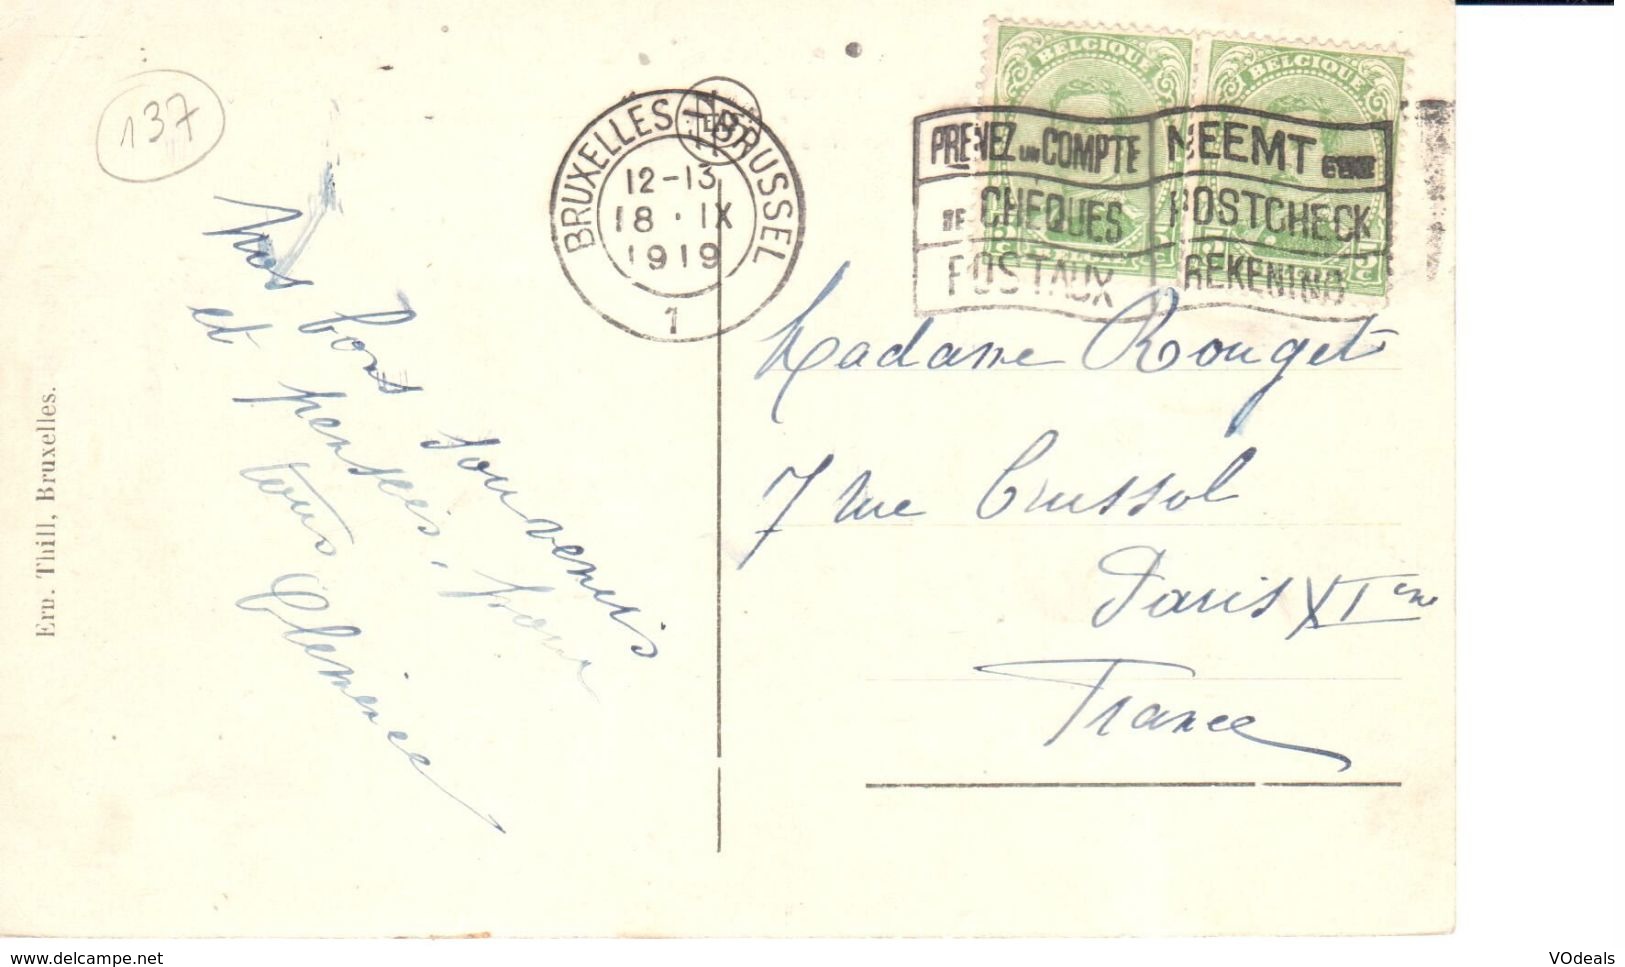 137
Nos bons souvenirs
et pensées. Pour
tous
Clémence
Ern. Thill, Bruxelles.
BRUXELLES BRUSSEL
12-13
18 · IX
1919
1
BELGIQUE
BELGIQUE
PRENEZ UN COMPTE
DE CHEQUES
POSTAUX
NEEMT EENE
POSTCHECK
REKENING
Madame Rouget
7 rue Crussol
Paris XIeme
France
www.delcampe.net
VOdeals